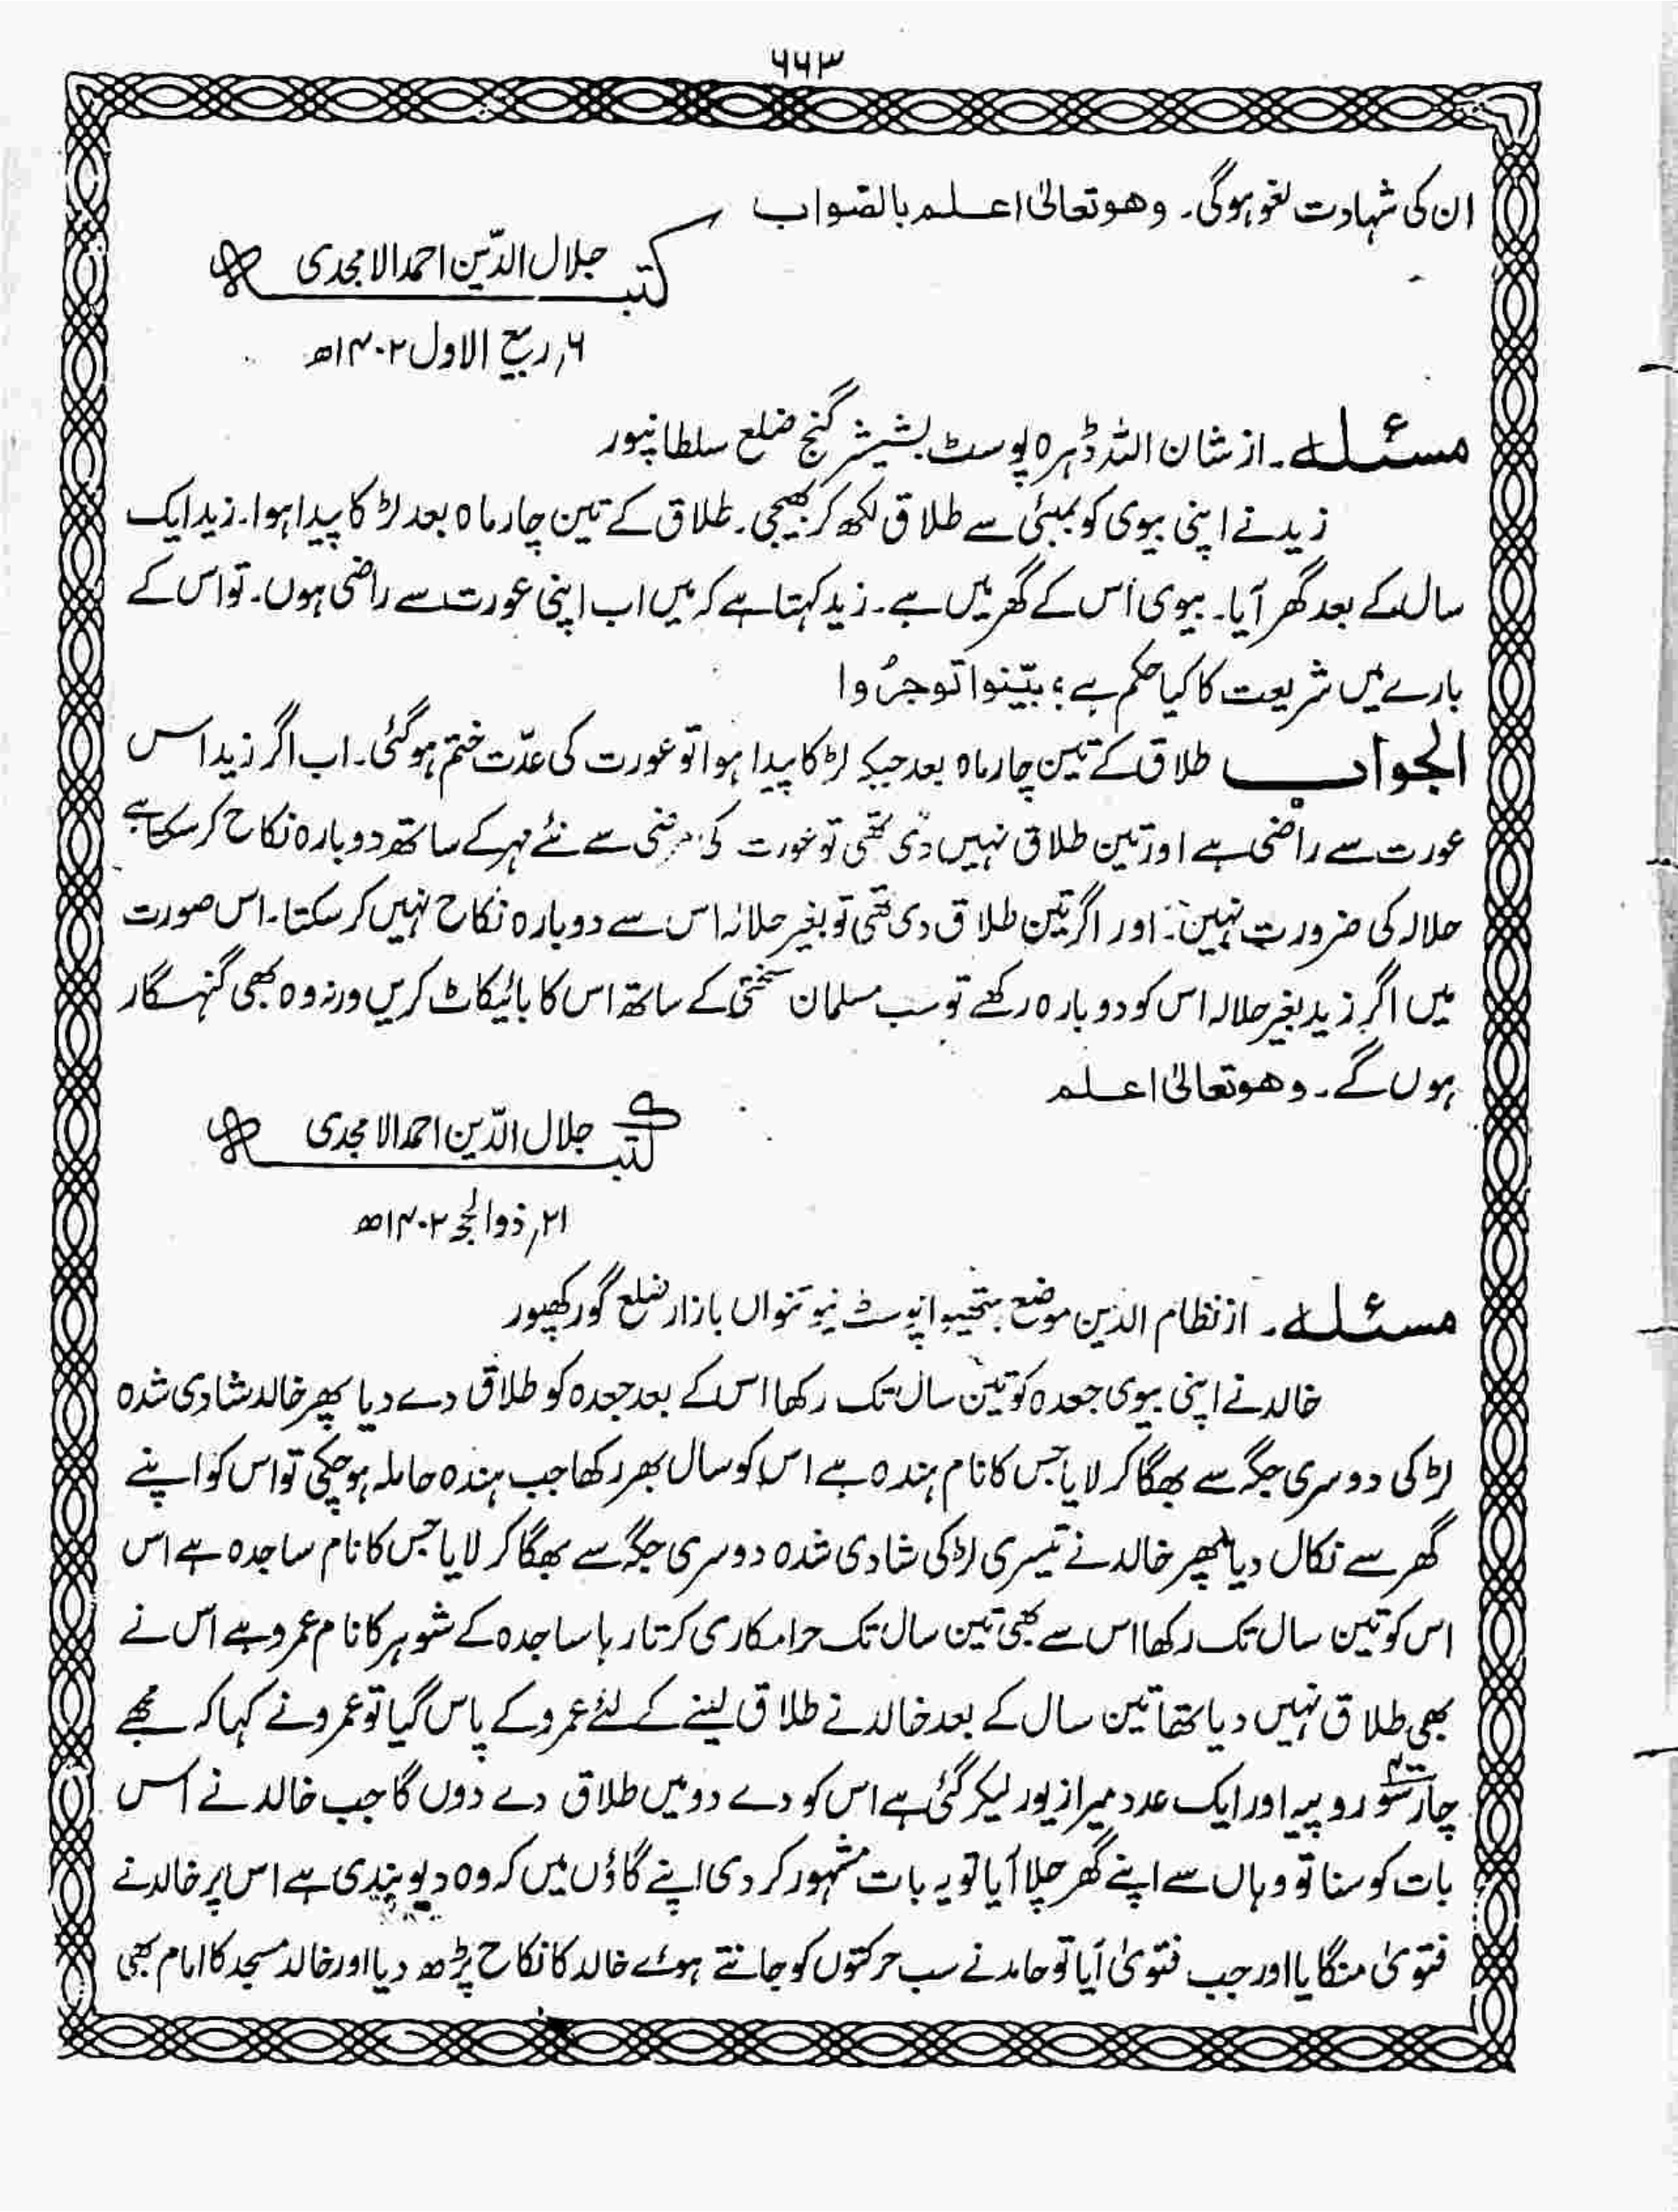 ۶۶۳
ان کی شہادت لغو ہوگی۔ وھو تعالیٰ اعلم بالصواب
کتبہ جلال الدّین احمد الامجدی
۶؍ ربیع الاول ۱۴۰۲ھ
مسئلہ۔ از شان اللہ ڈہرہ پوسٹ بشیشر گنج ضلع سلطانپور
زید نے اپنی بیوی کو بمبئی سے طلاق لکھ کر بھیجی۔ طلاق کے تین چار ماہ بعد لڑکا پیدا ہوا۔ زید ایک
سال کے بعد گھر آیا۔ بیوی اس کے گھر میں ہے۔ زید کہتا ہے کہ میں اب اپنی عورت سے راضی ہوں۔ تو اس کے
بارے میں شریعت کا کیا حکم ہے؟ بیّنوا توجرُوا
الجواب طلاق کے تین چار ماہ بعد جبکہ لڑکا پیدا ہوا تو عورت کی عدّت ختم ہوگئی۔ اب اگر زید اس
عورت سے راضی ہے اور تین طلاق نہیں دی تھی تو عورت کی مرضی سے نئے مہر کے ساتھ دوبارہ نکاح کر سکتا ہے
حلالہ کی ضرورت نہیں۔ اور اگر تین طلاق دی تھی تو بغیر حلالہ اس سے دوبارہ نکاح نہیں کر سکتا۔ اس صورت
میں اگر زید بغیر حلالہ اس کو دوبارہ رکھے تو سب مسلمان سختی کے ساتھ اس کا بائیکاٹ کریں ورنہ وہ بھی گنہگار
ہوں گے۔ وھو تعالیٰ اعلم
کتبہ جلال الدّین احمد الامجدی
۲۱؍ ذوالحجہ ۱۴۰۲ھ
مسئلہ۔ از نظام الدین موضع پوسٹ نیو تنواں بازار ضلع گورکھپور
خالد نے اپنی بیوی جعدہ کو تین سال تک رکھا اس کے بعد جعدہ کو طلاق دے دیا پھر خالد شادی شدہ
لڑکی دوسری جگہ سے بھگا کر لایا جس کا نام ہندہ ہے اس کو سال بھر رکھا جب ہندہ حاملہ ہوچکی تو اس کو اپنے
گھر سے نکال دیا پھر خالد نے تیسری لڑکی شادی شدہ دوسری جگہ سے بھگا کر لایا جس کا نام ساجدہ ہے اس
اس کو تین سال تک رکھا اس سے بھی تین سال تک حرامکاری کرتا رہا ساجدہ کے شوہر کا نام عمرو ہے اس نے
بھی طلاق نہیں دیا تھا تین سال کے بعد خالد نے طلاق لینے کے لئے عمرو کے پاس گیا تو عمرو نے کہا کہ مجھے
چار سو روپیہ اور ایک عدد میرا زیور لیکر گئی ہے اس کو دے دو میں طلاق دے دوں گا جب خالد نے اس
بات کو سنا تو وہاں سے اپنے گھر چلا آیا تو یہ بات مشہور کر دی اپنے گاؤں میں کہ وہ دیوبندی ہے اس پر خالد نے
فتویٰ منگایا اور جب فتویٰ آیا تو حامد نے سب حرکتوں کو جانتے ہوئے خالد کا نکاح پڑھ دیا اور خالد مسجد کا امام بھی